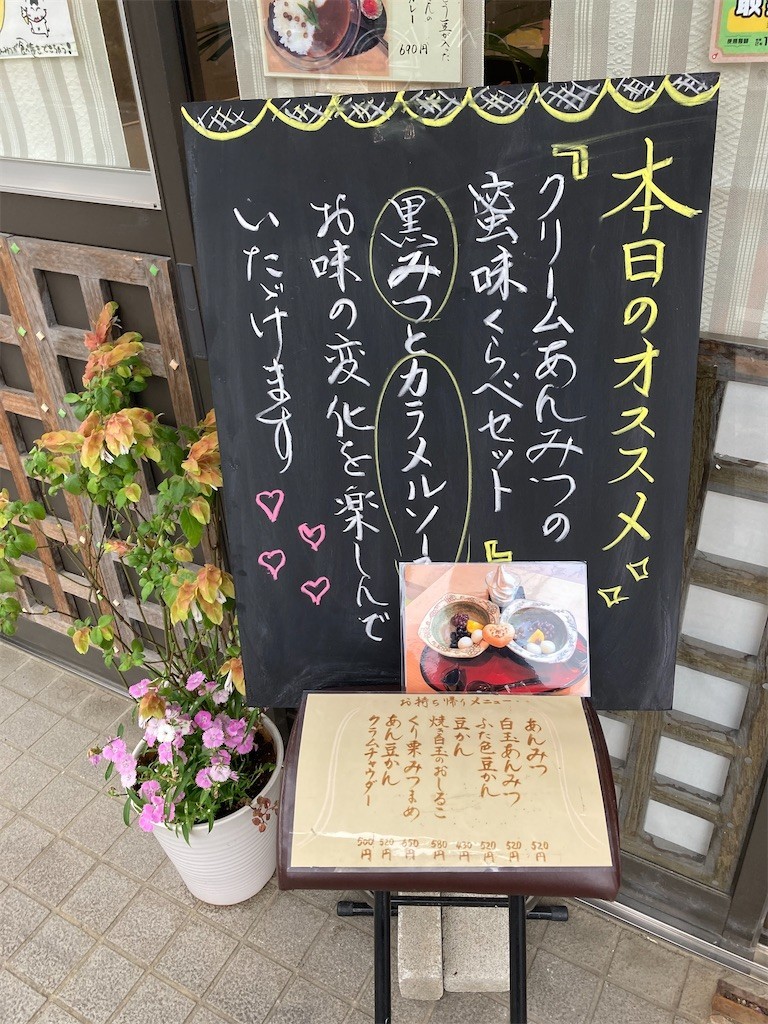 本日のオススメ
『クリームあんみつの
蜜味くらべセット』
黒みつとカラメルソー
お味の変化を楽しんで
いただけます
お持ち帰りメニュー
あんみつ 520円
白玉あんみつ 520円
ふた色豆かん 520円
豆かん 430円
焼き白玉のおしるこ 580円
くり栗みつまめ 650円
あん豆かん 520円
クラムチャウダー 500円
690円